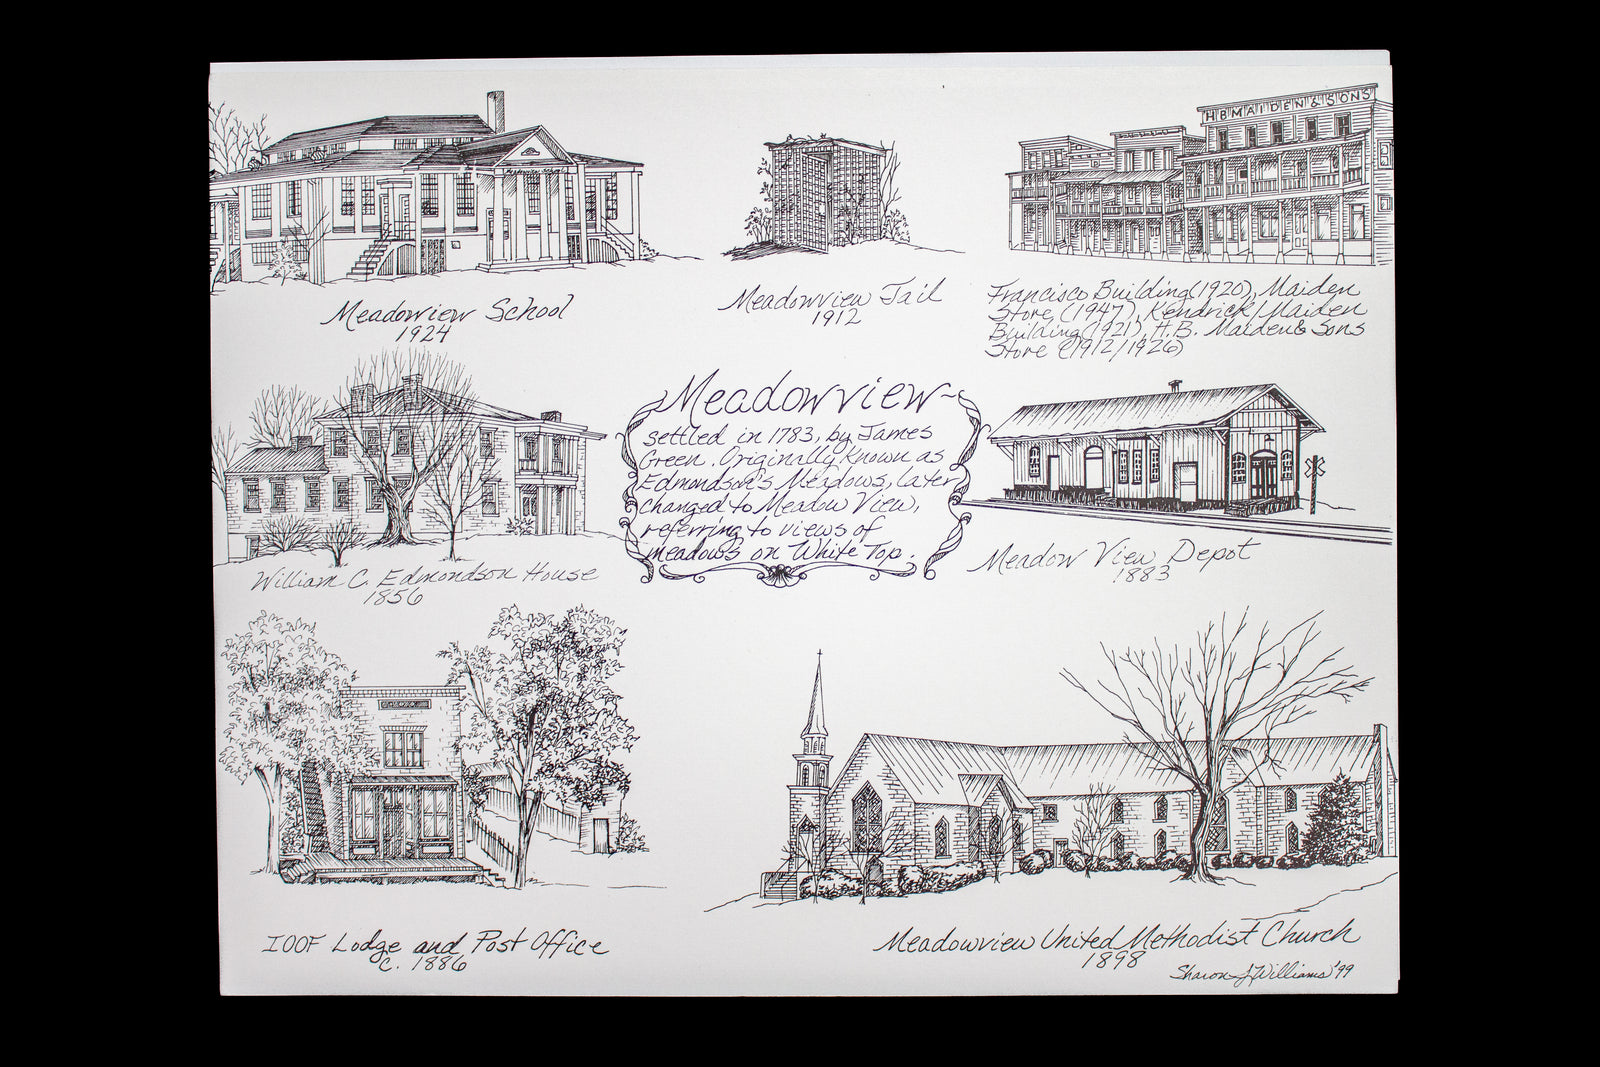 H B MAIDEN & SONS
Meadowview School
1924
Meadowview Jail
1912
Francisco Building (1920), Maiden
Store (1947), Kendrick/Maiden
Building (1921), H.B. Maiden & Sons
Store (1912/1926)
Meadowview~
settled in 1783, by James
Green. Originally Known as
Edmondson's Meadows, later
changed to Meadow View,
referring to views of
meadows on White Top.
William C. Edmondson House
1856
Meadow View Depot
1883
IOOF Lodge and Post Office
c. 1886
Meadowview United Methodist Church
1898
Sharon J Williams '99